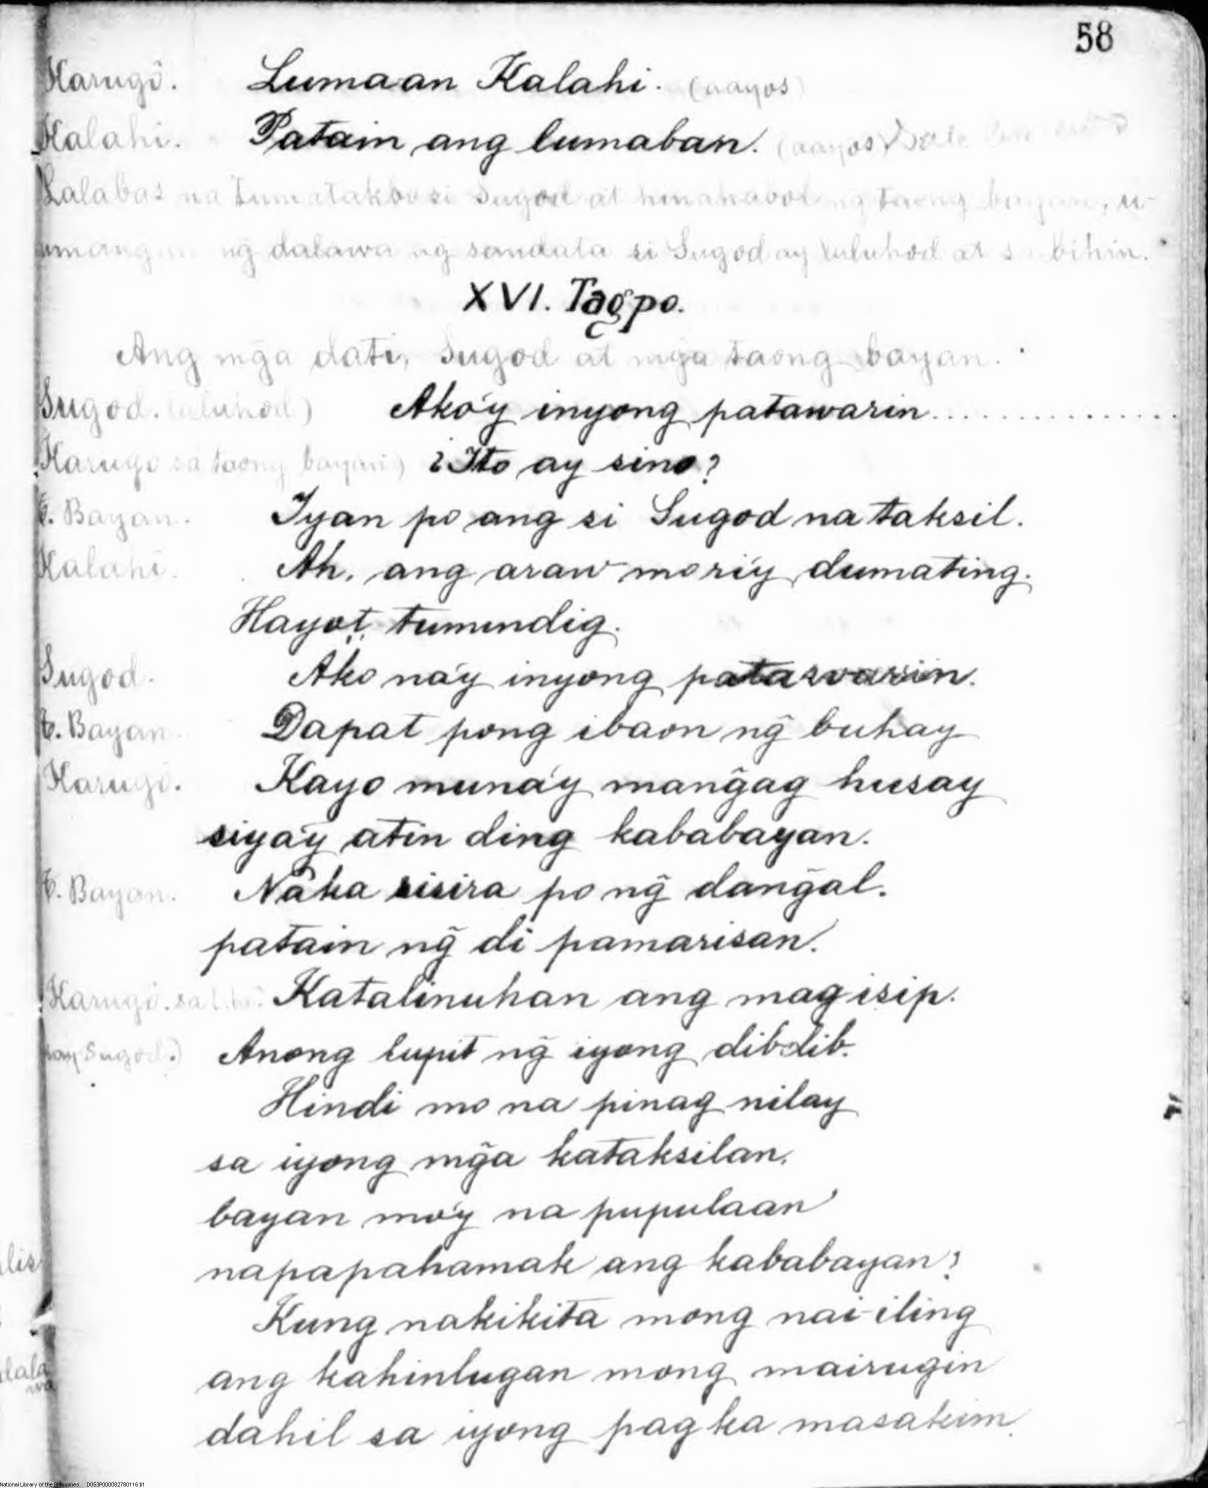 58
Karugô. Lumaan Kalahi. (aayos)
Kalahi. Patain ang lumaban. (aayos)
Lalabas na tumatakbo si Sugod at hinahabol ng taong bayan,
ng̃ dalawa ag sandata si Sugod ay luluhod at
XVI. Tagpo.
Ang mg̃a dati, Sugod at mg̃a taong bayan.
Sugod. (aluhod) Ako'y inyong patawarin..............
Karugo sa taong bayan) ¿Ito ay sino?
T. Bayan. Iyan po ang si Sugod na taksil.
Kalahi. Ah, ang araw mo ri'y dumating.
Hayo't tumindig.
Sugod. Ako na'y inyong patawarin.
T. Bayan. Dapat pong ibaon ng̃ buhay
Karugô. Kayo muna'y mang̃ag husay
siya'y atin ding kababayan.
T. Bayan. Náka sisira po ng̃ dang̃al.
patain ng̃ di pamarisan.
Karugô. sa t. ba. Katalinuhan ang mag isip.
kay Sugod.) Anong lupit ng̃ iyong dibdib.
Hindi mo na pinag nilay
sa iyong mg̃a kataksilan.
bayan mo'y na pupulaan
napapahamak ang kababayan?
Kung nakikita mong nai-iling
ang kahinlugan mong mairugin
dahil sa iyong pag ka masakim
National Library of the Philippines